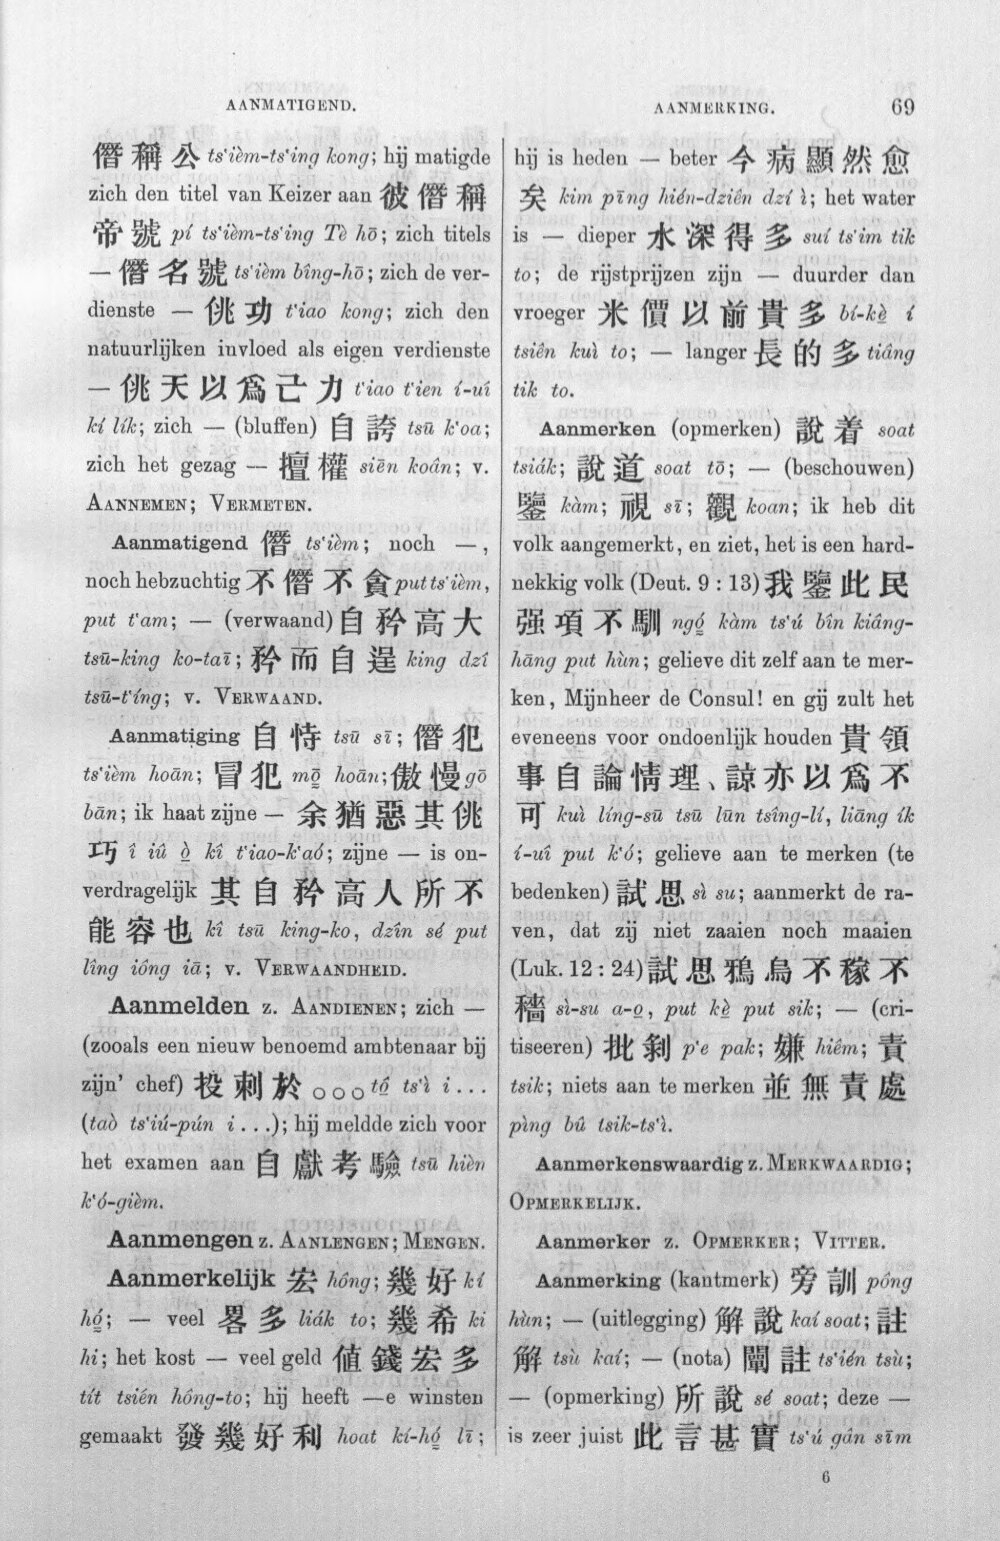 AANMATIGEND.
AANMERKING. 69
僭稱公 ts‘ièm-ts‘ing kong; hij matigde
zich den titel van Keizer aan 彼僭稱
帝號 pí ts‘ièm-ts‘ing Tè hō; zich titels
— 僭名號 ts‘ièm bîng-hō; zich de ver-
dienste — 佻功 t‘iao kong; zich den
natuurlijken invloed als eigen verdienste
— 佻天以爲己力 t‘iao t‘ien í-uî
kí lík; zich — (bluffen) 自誇 tsū k‘oa;
zich het gezag — 擅權 siēn koân; v.
AANNEMEN; VERMETEN.
Aanmatigend 僭 ts‘ièm; noch —,
noch hebzuchtig 不僭不貪 put ts‘ièm,
put t‘am; — (verwaand) 自矜高大
tsū-king ko-taī; 矜而自逞 king dzî
tsū-t‘íng; v. VERWAAND.
Aanmatiging 自恃 tsū sī; 僭犯
ts‘ièm hoān; 冒犯 mō̤ hoān; 傲慢 gō
bān; ik haat zijne — 余猶惡其佻
巧 î iû ò̤ kî t‘iao-k‘aó; zijne — is on-
verdragelijk 其自矜高人所不
能容也 kî tsū king-ko, dzîn sé put
lîng iông iā; v. VERWAANDHEID.
Aanmelden z. AANDIENEN; zich —
(zooals een nieuw benoemd ambtenaar bij
zijn’ chef) 投刺於○○○ tó̤ ts‘ì i...
(taò ts‘iú-pún i...); hij meldde zich voor
het examen aan 自獻考驗 tsū hièn
k‘ó-gièm.
Aanmengen z. AANLENGEN; MENGEN.
Aanmerkelijk 宏 hông; 幾好 kí
hó̤; — veel 畧多 liák to; 幾希 ki
hi; het kost — veel geld 値錢宏多
tít tsién hông-to; hij heeft —e winsten
gemaakt 發幾好利 hoat kí-hó̤ lī;
hij is heden — beter 今病顯然愈
矣 kim pīng hién-dziên dzí ì; het water
is — dieper 水深得多 suí ts‘im tik
to; de rijstprijzen zijn — duurder dan
vroeger 米價以前貴多 bí-kè̤ í
tsiên kuì to; — langer 長的多 tiâng
tik to.
Aanmerken (opmerken) 說着 soat
tsiák; 說道 soat tō; — (beschouwen)
鑒 kàm; 視 sī; 觀 koan; ik heb dit
volk aangemerkt, en ziet, het is een hard-
nekkig volk (Deut. 9 : 13) 我鑒此民
强項不馴 ngó̤ kàm ts‘ú bîn kiâng-
hāng put hùn; gelieve dit zelf aan te mer-
ken, Mijnheer de Consul! en gij zult het
eveneens voor ondoenlijk houden 貴領
事自論情理、諒亦以爲不
可 kuì líng-sū tsū lūn tsîng-lí, liāng ík
í-uî put k‘ó; gelieve aan te merken (te
bedenken) 試思 sì su; aanmerkt de ra-
ven, dat zij niet zaaien noch maaien
(Luk. 12 : 24) 試思鴉鳥不稼不
穡 sì-su a-o̤, put kè̤ put sik; — (cri-
tiseeren) 批剝 p‘e pak; 嫌 hiêm; 責
tsik; niets aan te merken 並無責處
pìng bû tsik-ts‘ì.
Aanmerkenswaardig z. MERKWAARDIG;
OPMERKELIJK.
Aanmerker z. OPMERKER; VITTER.
Aanmerking (kantmerk) 旁訓 pông
hùn; — (uitlegging) 解說 kaí soat; 註
解 tsù kaí; — (nota) 闡註 ts‘ién tsù;
— (opmerking) 所說 sé soat; deze —
is zeer juist 此言甚實 ts‘ú gân sīm
6